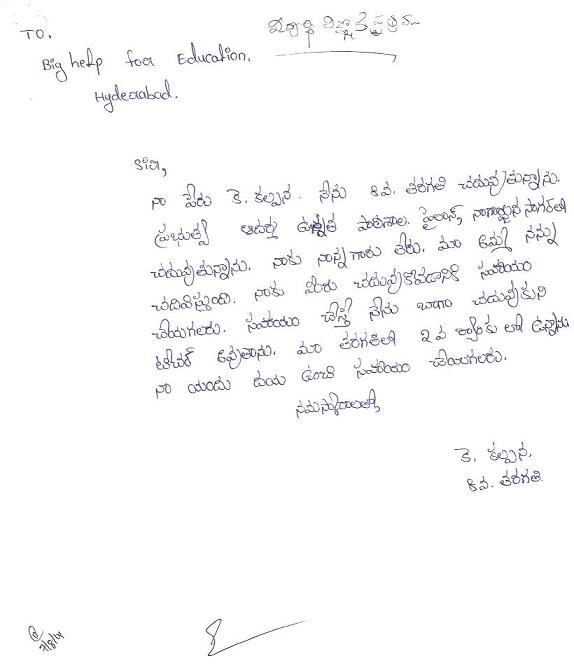 TO,
విద్యార్థి విజ్ఞాపన పత్రము
Big help for Education,
Hyderabad.
Sir,
నా పేరు కె. కల్పన. నేను 8వ. తరగతి చదువుతున్నాను.
ప్రభుత్వ ఆదర్శ ఉన్నత పాఠశాల. పైలాన్, నాగార్జున సాగర్‌లో
చదువుతున్నాను. నాకు నాన్నగారు లేరు. మా అమ్మే నన్ను
చదివిస్తుంది. నాకు మీరు చదువుకోవడానికి సహాయం
చేయగలరు. సహాయం చేస్తే నేను బాగా చదువుకుని
టీచర్ అవుతాను. మా తరగతిలో 2వ ర్యాంకు లో ఉన్నాను
నా యందు దయ ఉంచి సహాయం చేయగలరు.
నమస్కారాలతో,
కె. కల్పన,
8వ. తరగతి.